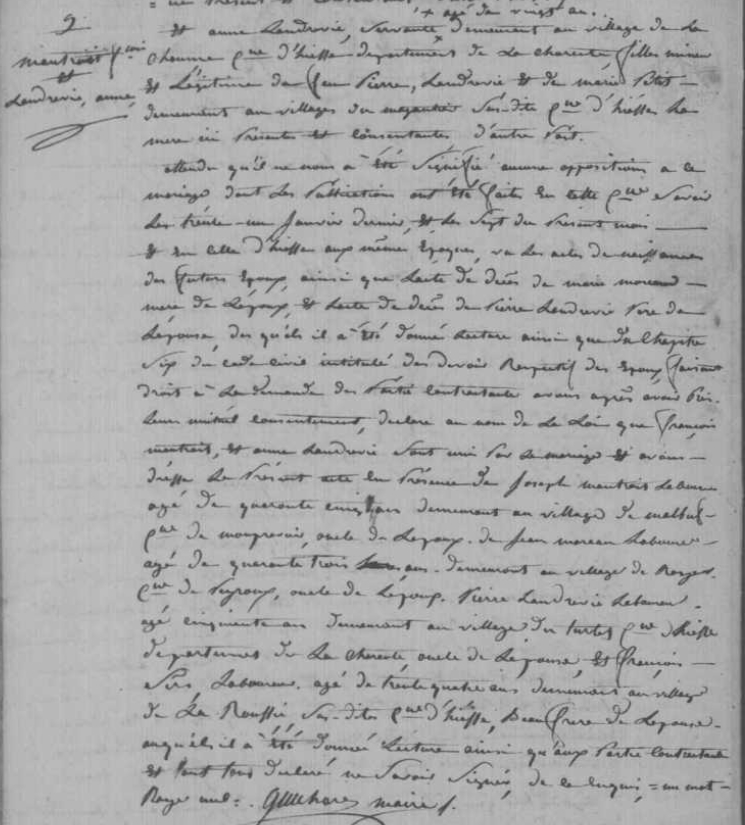 + agé de vingt an.
2
mentrait fcois
et
Landrevie, anne
Et anne Landrevie, Servante + demeurant au village de La
Chaume Cne d'hiesse departement de La charente, fille mineur
et Légitime de feu Pierre, Landrevie et de marie Petit —
demeurant au villages du Sus-dite Cne d'hiesse La
mere ici Présente et consentante d'autre Part.
attendu qu'il ne nous a été Signifié aucune opposition a ce
mariage dont Les Publications ont été faites En cette Cne Savoir
Les trente-un Janvier dernier, et Les Sept du Présent mois —
et En Celle d'hiesse aux mêmes Epoques, vu Les actes de naissances
des futurs Epoux, ainsi que Lacte de décès de marie moreaud —
mere de Lépoux, et Lacte de décès de Pierre Landrevie Pere de
Lepouse, des quels il a été donné Lecture ainsi que du Chapitre
Six du code civil intitulé des devoir Respectif des Epoux, faisant
droit a La demande des Partie Contractante avons après avoir Pris
Leurs mutuel consentement, declare au nom de La Loi que françois
mentrait, et anne Landrevie Sont uni Par Le mariage et avons —
dressé Le Présent acte En Présence de Joseph mentrait Laboureur
agé de quarante cinq ans demeurant au village de
Cne de oncle de Lepoux. de Jean moreau Laboureur —
agé de quarante trois ans. demeurant au village de
Cne de oncle de Lépoux. Pierre Landrevie Laboureur.
agé cinquante an demeurant au village des Cne d'hiesse
departement de La charente, oncle de Lepouse, Et françois —
Laboureur. agé de trente quatre ans demeurant au village
de La Roussie Sus-dite Cne d'hiesse, Beau frere de Lepouse.
auquéls il a été donnée Lecture ainsi qu'aux Partie Contractante
et Sont tous declaré ne Savoir Signér, de ce Enquis = un mot —
Rayé nul =. maire